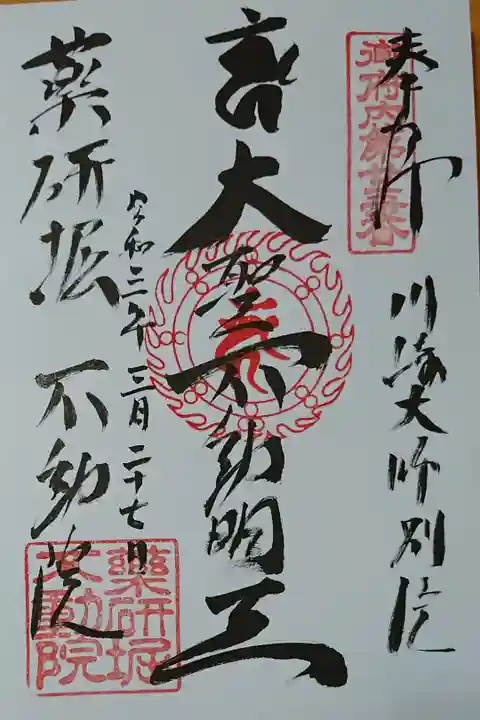 奉拝
川崎大師別院
大聖不動明王
令和三年三月二十七日
薬研堀 不動院
薬研堀
不動院